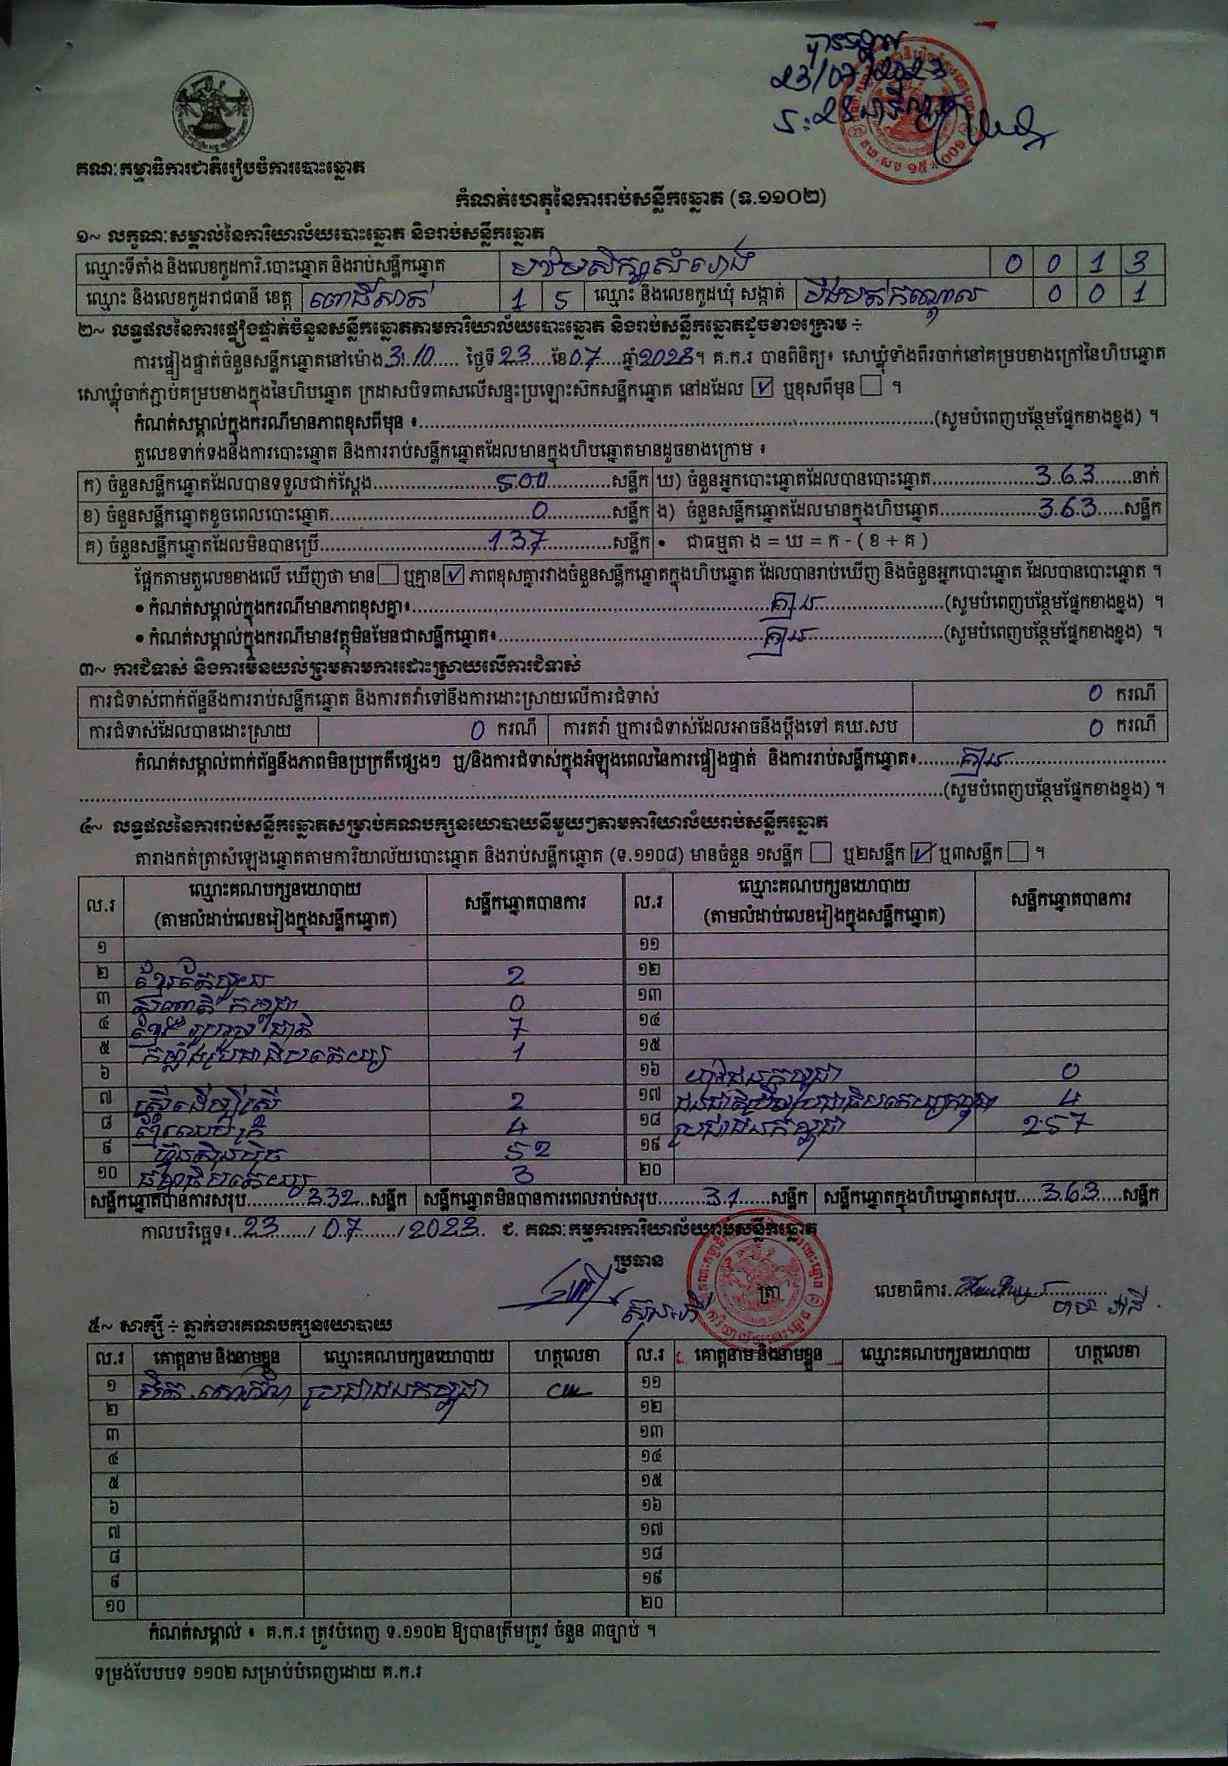 បានទទួល
23/07/2023
គណៈកម្មាធិការជាតិរៀបចំការបោះឆ្នោត
កំណត់ហេតុនៃការរាប់សន្លឹកឆ្នោត (ទ.១១០២)
១~ លក្ខណៈសម្គាល់នៃការិយាល័យបោះឆ្នោត និងរាប់សន្លឹកឆ្នោត
ឈ្មោះទីតាំង និងលេខកូដការិ.បោះឆ្នោត និងរាប់សន្លឹកឆ្នោត 0 0 1 3
ឈ្មោះ និងលេខកូដរាជធានី ខេត្ត ពោធិ៍សាត់ 1 5 ឈ្មោះ និងលេខកូដឃុំ សង្កាត់ បឹងបត់កណ្ដាល 0 0 1
២~ លទ្ធផលនៃការផ្ទៀងផ្ទាត់ចំនួនសន្លឹកឆ្នោតតាមការិយាល័យបោះឆ្នោត និងរាប់សន្លឹកឆ្នោតដូចខាងក្រោម ÷
ការផ្ទៀងផ្ទាត់ចំនួនសន្លឹកឆ្នោតនៅម៉ោង 3:10 ថ្ងៃទី 23 ខែ 07 ឆ្នាំ 2023 ។ គ.ក.រ បានពិនិត្យ៖ សោឃ្លុំទាំងពីរចាក់នៅគម្របខាងក្រៅនៃហិបឆ្នោត
សោឃ្លុំចាក់ភ្ជាប់គម្របខាងក្នុងនៃហិបឆ្នោត ក្រដាសបិទពាសលើសន្ទះប្រឡោះស៊កសន្លឹកឆ្នោត នៅដដែល ☑ ឬខុសពីមុន ☐ ។
កំណត់សម្គាល់ក្នុងករណីមានភាពខុសពីមុន ៖ (សូមបំពេញបន្ថែមផ្នែកខាងខ្នង) ។
តួលេខទាក់ទងនឹងការបោះឆ្នោត និងការរាប់សន្លឹកឆ្នោតដែលមានក្នុងហិបឆ្នោតមានដូចខាងក្រោម ៖
ក) ចំនួនសន្លឹកឆ្នោតដែលបានទទួលជាក់ស្តែង 500 សន្លឹក ឃ) ចំនួនអ្នកបោះឆ្នោតដែលបានបោះឆ្នោត 363 នាក់
ខ) ចំនួនសន្លឹកឆ្នោតខូចពេលបោះឆ្នោត 0 សន្លឹក ង) ចំនួនសន្លឹកឆ្នោតដែលមានក្នុងហិបឆ្នោត 363 សន្លឹក
គ) ចំនួនសន្លឹកឆ្នោតដែលមិនបានប្រើ 137 សន្លឹក • ជាធម្មតា ង = ឃ = ក - ( ខ + គ )
ផ្អែកតាមតួលេខខាងលើ ឃើញថា មាន ☐ ឬគ្មាន ☑ ភាពខុសគ្នារវាងចំនួនសន្លឹកឆ្នោតក្នុងហិបឆ្នោត ដែលបានរាប់ឃើញ និងចំនួនអ្នកបោះឆ្នោត ដែលបានបោះឆ្នោត ។
• កំណត់សម្គាល់ក្នុងករណីមានភាពខុសគ្នា៖ គ្មាន (សូមបំពេញបន្ថែមផ្នែកខាងខ្នង) ។
• កំណត់សម្គាល់ក្នុងករណីមានវត្ថុមិនមែនជាសន្លឹកឆ្នោត៖ គ្មាន (សូមបំពេញបន្ថែមផ្នែកខាងខ្នង) ។
៣~ ការជំទាស់ និងការមិនយល់ព្រមតាមការដោះស្រាយលើការជំទាស់
ការជំទាស់ពាក់ព័ន្ធនឹងការរាប់សន្លឹកឆ្នោត និងការតវ៉ាទៅនឹងការដោះស្រាយលើការជំទាស់ 0 ករណី
ការជំទាស់ដែលបានដោះស្រាយ 0 ករណី ការតវ៉ា ឬការជំទាស់ដែលអាចនឹងប្តឹងទៅ គឃ.សប 0 ករណី
កំណត់សម្គាល់ពាក់ព័ន្ធនឹងភាពមិនប្រក្រតីផ្សេងៗ ឬ/និងការជំទាស់ក្នុងអំឡុងពេលនៃការផ្ទៀងផ្ទាត់ និងការរាប់សន្លឹកឆ្នោត៖ គ្មាន
(សូមបំពេញបន្ថែមផ្នែកខាងខ្នង) ។
៤~ លទ្ធផលនៃការរាប់សន្លឹកឆ្នោតសម្រាប់គណបក្សនយោបាយនីមួយៗតាមការិយាល័យរាប់សន្លឹកឆ្នោត
តារាងកត់ត្រាសំឡេងឆ្នោតតាមការិយាល័យបោះឆ្នោត និងរាប់សន្លឹកឆ្នោត (ទ.១១០៨) មានចំនួន ១សន្លឹក ☐ ឬ២សន្លឹក ☑ ឬ៣សន្លឹក ☐ ។
ល.រ ឈ្មោះគណបក្សនយោបាយ (តាមលំដាប់លេខរៀងក្នុងសន្លឹកឆ្នោត) សន្លឹកឆ្នោតបានការ ល.រ ឈ្មោះគណបក្សនយោបាយ (តាមលំដាប់លេខរៀងក្នុងសន្លឹកឆ្នោត) សន្លឹកឆ្នោតបានការ
១ ១១
២ 2 ១២
៣ 0 ១៣
៤ 7 ១៤
៥ កម្លាំងប្រជាធិបតេយ្យ 1 ១៥
៦ ១៦ 0
៧ ស្ត្រីដើម្បីស្ត្រី 2 ១៧ 4
៨ 4 ១៨ ប្រជាជនកម្ពុជា 257
៩ ហ៊្វុនស៊ិនប៉ិច 52 ១៩
១០ 3 ២០
សន្លឹកឆ្នោតបានការសរុប 332 សន្លឹក សន្លឹកឆ្នោតមិនបានការពេលរាប់សរុប 31 សន្លឹក សន្លឹកឆ្នោតក្នុងហិបឆ្នោតសរុប 363 សន្លឹក
កាលបរិច្ឆេទ៖ 23 / 07 / 2023 ជ. គណៈកម្មការការិយាល័យរាប់សន្លឹកឆ្នោត
ប្រធាន
ត្រា
លេខាធិការ
៥~ សាក្សី ÷ ភ្នាក់ងារគណបក្សនយោបាយ
ល.រ គោត្តនាម និងនាមខ្លួន ឈ្មោះគណបក្សនយោបាយ ហត្ថលេខា ល.រ គោត្តនាម និងនាមខ្លួន ឈ្មោះគណបក្សនយោបាយ ហត្ថលេខា
១ ប្រជាជនកម្ពុជា ១១
២ ១២
៣ ១៣
៤ ១៤
៥ ១៥
៦ ១៦
៧ ១៧
៨ ១៨
៩ ១៩
១០ ២០
កំណត់សម្គាល់ ៖ គ.ក.រ ត្រូវបំពេញ ទ.១១០២ ឱ្យបានត្រឹមត្រូវ ចំនួន ៣ច្បាប់ ។
ទម្រង់បែបបទ ១១០២ សម្រាប់បំពេញដោយ គ.ក.រ